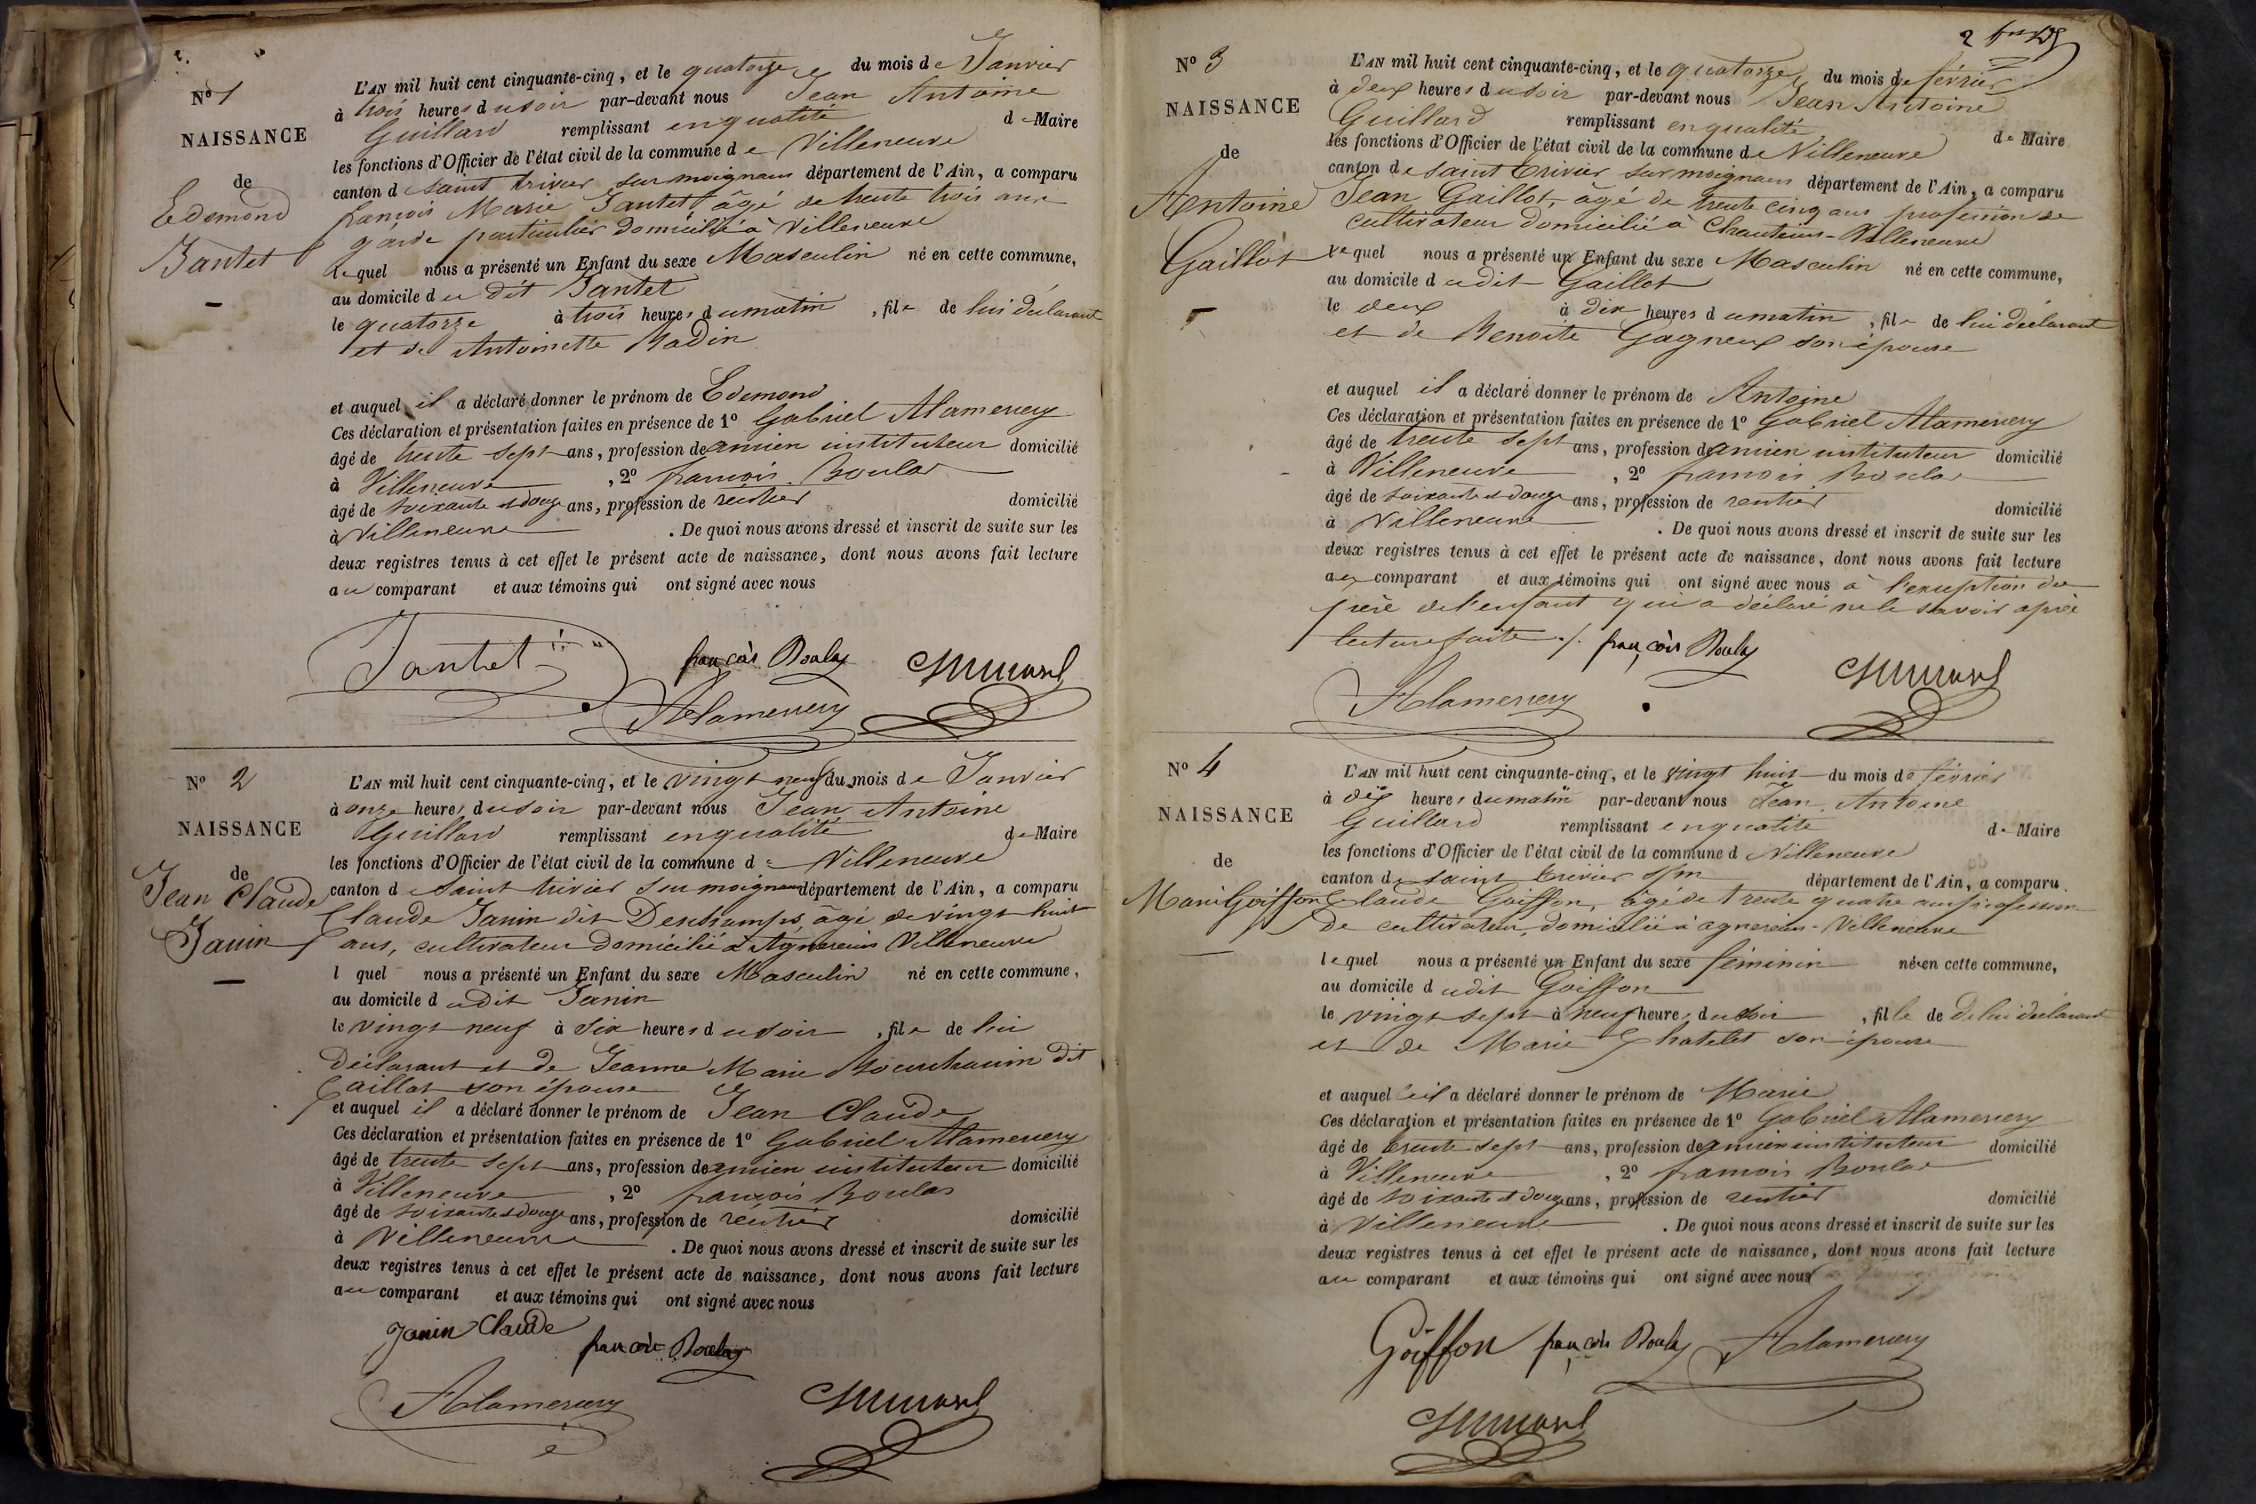 Nº 1
NAISSANCE
de
Edemond
Jantet
L'AN mil huit cent cinquante-cinq, et le quatorze du mois de Janvier
à trois heures du soir par-devant nous Jean Antoine
Guillard remplissant en qualité de Maire
les fonctions d'Officier de l'état civil de la commune de Villeneuve
canton de saint trivier sur moignans département de l'Ain, a comparu
françois Marie Jantet âgé de trente trois ans
garde particulier domicilié à Villeneuve
Lequel nous a présenté un Enfant du sexe Masculin né en cette commune,
au domicile du dit Jantet
le quatorze à trois heures du matin, fils de lui déclarant
et de Antoinette Badin
et auquel il a déclaré donner le prénom de Edemond
Ces déclaration et présentation faites en présence de 1º Gabriel Alamercery
âgé de trente sept ans, profession de ancien instituteur domicilié
à Villeneuve, 2º françois Boulas
âgé de soixante et douze ans, profession de rentier domicilié
à Villeneuve. De quoi nous avons dressé et inscrit de suite sur les
deux registres tenus à cet effet le présent acte de naissance, dont nous avons fait lecture
au comparant et aux témoins qui ont signé avec nous
Jantet françois Boulas
Alamercery
Nº 2
NAISSANCE
de
Jean Claude
Janin
L'AN mil huit cent cinquante-cinq, et le vingt neuf du mois de Janvier
à onze heures du soir par-devant nous Jean Antoine
Guillard remplissant en qualité de Maire
les fonctions d'Officier de l'état civil de la commune de Villeneuve
canton de saint trivier sur moignans département de l'Ain, a comparu
Claude Janin dit Deschamps, âgé de vingt huit
ans, cultivateur domicilié à Agnereins Villeneuve
l quel nous a présenté un Enfant du sexe Masculin né en cette commune,
au domicile dudit Janin
le vingt neuf à six heures du soir, fils de lui
déclarant et de Jeanne Marie dit
Caillat son épouse
et auquel il a déclaré donner le prénom de Jean Claude
Ces déclaration et présentation faites en présence de 1º Gabriel Alamercery
âgé de trente sept ans, profession de ancien instituteur domicilié
à Villeneuve, 2º françois Boulas
âgé de soixante et douze ans, profession de rentier domicilié
à Villeneuve. De quoi nous avons dressé et inscrit de suite sur les
deux registres tenus à cet effet le présent acte de naissance, dont nous avons fait lecture
au comparant et aux témoins qui ont signé avec nous
Janin Claude
françois Boulas
Alamercery
2
Nº 3
NAISSANCE
de
Antoine
Gaillot
L'AN mil huit cent cinquante-cinq, et le quatorze du mois de février
à deux heures du soir par-devant nous Jean Antoine
Guillard remplissant en qualité de Maire
les fonctions d'Officier de l'état civil de la commune de Villeneuve
canton de saint trivier sur moignans département de l'Ain, a comparu
Jean Gaillot, âgé de trente cinq ans profession de
cultivateur domicilié à Chanteins-Villeneuve
Lequel nous a présenté un Enfant du sexe Masculin né en cette commune,
au domicile dudit Gaillot
le deux à dix heures du matin, fils de lui déclarant
et de Benoite Gagneux son épouse
et auquel il a déclaré donner le prénom de Antoine
Ces déclaration et présentation faites en présence de 1º Gabriel Alamercery
âgé de trente sept ans, profession de ancien instituteur domicilié
à Villeneuve, 2º françois Boulas
âgé de soixante et douze ans, profession de rentier domicilié
à Villeneuve. De quoi nous avons dressé et inscrit de suite sur les
deux registres tenus à cet effet le présent acte de naissance, dont nous avons fait lecture
au comparant et aux témoins qui ont signé avec nous à l'exception du
père de l'enfant qui a déclaré ne le savoir après
lecture faite ./. françois Boulas
Alamercery
Nº 4
NAISSANCE
de
Marie Goiffon
L'AN mil huit cent cinquante-cinq, et le vingt huit du mois de février
à dix heures du matin par-devant nous Jean Antoine
Guillard remplissant en qualité de Maire
les fonctions d'Officier de l'état civil de la commune d Villeneuve
canton de saint trivier s/m département de l'Ain, a comparu
Claude Goiffon, âgé de trente quatre ans profession
de cultivateur domicilié à agnereins-Villeneuve
lequel nous a présenté un Enfant du sexe féminin née en cette commune,
au domicile dudit Goiffon
le vingt sept à neuf heures du soir, fille de De lui déclarant
et de Marie Chatelet son épouse
et auquel il a déclaré donner le prénom de Marie
Ces déclaration et présentation faites en présence de 1º Gabriel Alamercery
âgé de trente sept ans, profession de ancien instituteur domicilié
à Villeneuve, 2º françois Boulas
âgé de soixante et douze ans, profession de rentier domicilié
à Villeneuve. De quoi nous avons dressé et inscrit de suite sur les
deux registres tenus à cet effet le présent acte de naissance, dont nous avons fait lecture
au comparant et aux témoins qui ont signé avec nous
Goiffon françois Boulas Alamercery